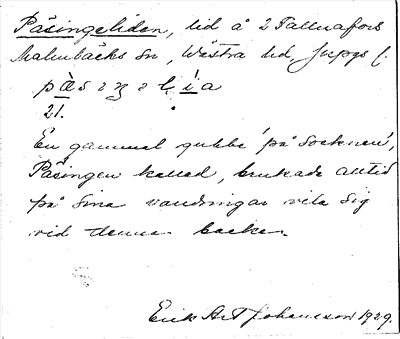 Påsingeliden, lid å 2 Tallnäfors
Malmbäcks sn, Västra hd, Jkpgs l.
21.
En gammal gubbe 'på socknen',
Påsingen kallad, brukade alltid
på sina vandringar vila sig
vid denna backe.
Erik Art Johansson 1929.